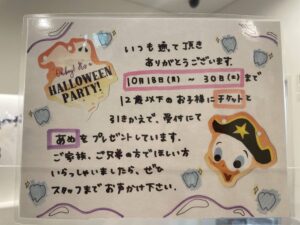 HALLOWEEN
PARTY!
いつも通って頂き
ありがとうございます。
10月18日(月) 〜 30日(土)まで
12歳以下のお子様にチケットと
引きかえで、受付にて
あめをプレゼントしています。
ご家族、ご兄弟の方でほしい方
いらっしゃいましたら、ぜひ
スタッフまでお声かけ下さい。